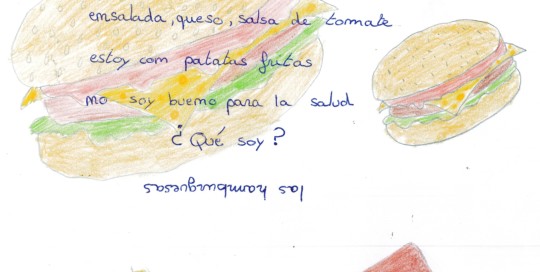 ensalada, queso, salsa de tomate
estoy com patatas fritas
mo soy buemo para la salud
¿Qué soy?
las hamburguesas